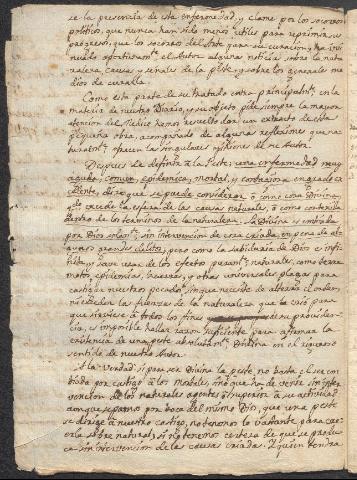 se la presencia de esta enfermedad, y clame por los socorros
politico, que nunca han sido menos utiles para reprimir su
progreso, que los socorros del Arte para su curacion, y ha in-
cluido oportunam.te el Autor alguna noticia sobre la natu-
raleza, causas, y señales de la peste, y sobre los generales me
dios de curarla.
Como esta parte de su tratado entra principalm.te en la
materia de nuestro Diario, y su objeto pide siempre la mayor
atencion del Medico, hemos resuelto dar un extracto de esta
pequeña obra, acompañado de algunas reflexiones que na-
turalm.te ofrecen las singulares opiniones de su Autor.
Despues de definir a la Peste; una enfermedad muy
aguda, comun, epidemica, mortal, y contagiosa en grado ex
celente, dice que se puede considerar, o como cosa Divina,
q.e excede la esfera de las causas naturales, o como contenida
dentro de los terminos de la naturaleza. La Divina es embiada
por Dios solam.te, sin intervencion de cosa criada, en pena de al-
gunos grandes delitos; pero como la sabiduria de Dios es infi-
nita, y save usar de los efectos puram.te naturales, como terre
motos, epidemias, y otras universales plagas para
castigar nuestros pecados, sin que necesite de alterar el orden,
ni exceder las fuerzas de la naturaleza que la Dio para
que sirviese a todos los fines de su providen-
cia, es imposible hallar razon suficiente para afirmar la
existencia de una peste absolutam.te Divina en el riguroso
sentido de nuestro Autor.
A la verdad; si para ser Divina la peste, no basta el ser em
biada por castigo a los mortales, sino que ha de venir sin inter
vencion de los naturales agentes o superior a su actividad,
aunque sepamos por boca del mismo Dios, que una peste
se dirige a nuestro castigo, no tenemos lo bastante para cre-
erla sobre natural, si no tenemos certeza de que se produ-
ce sin intervencion de las causas criadas. Y quien tendra